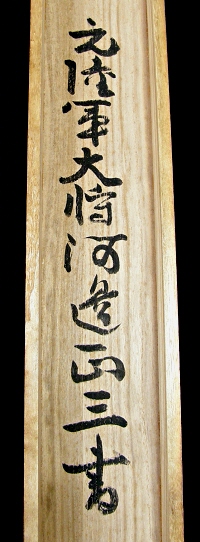 元陸軍大将河邊正三書